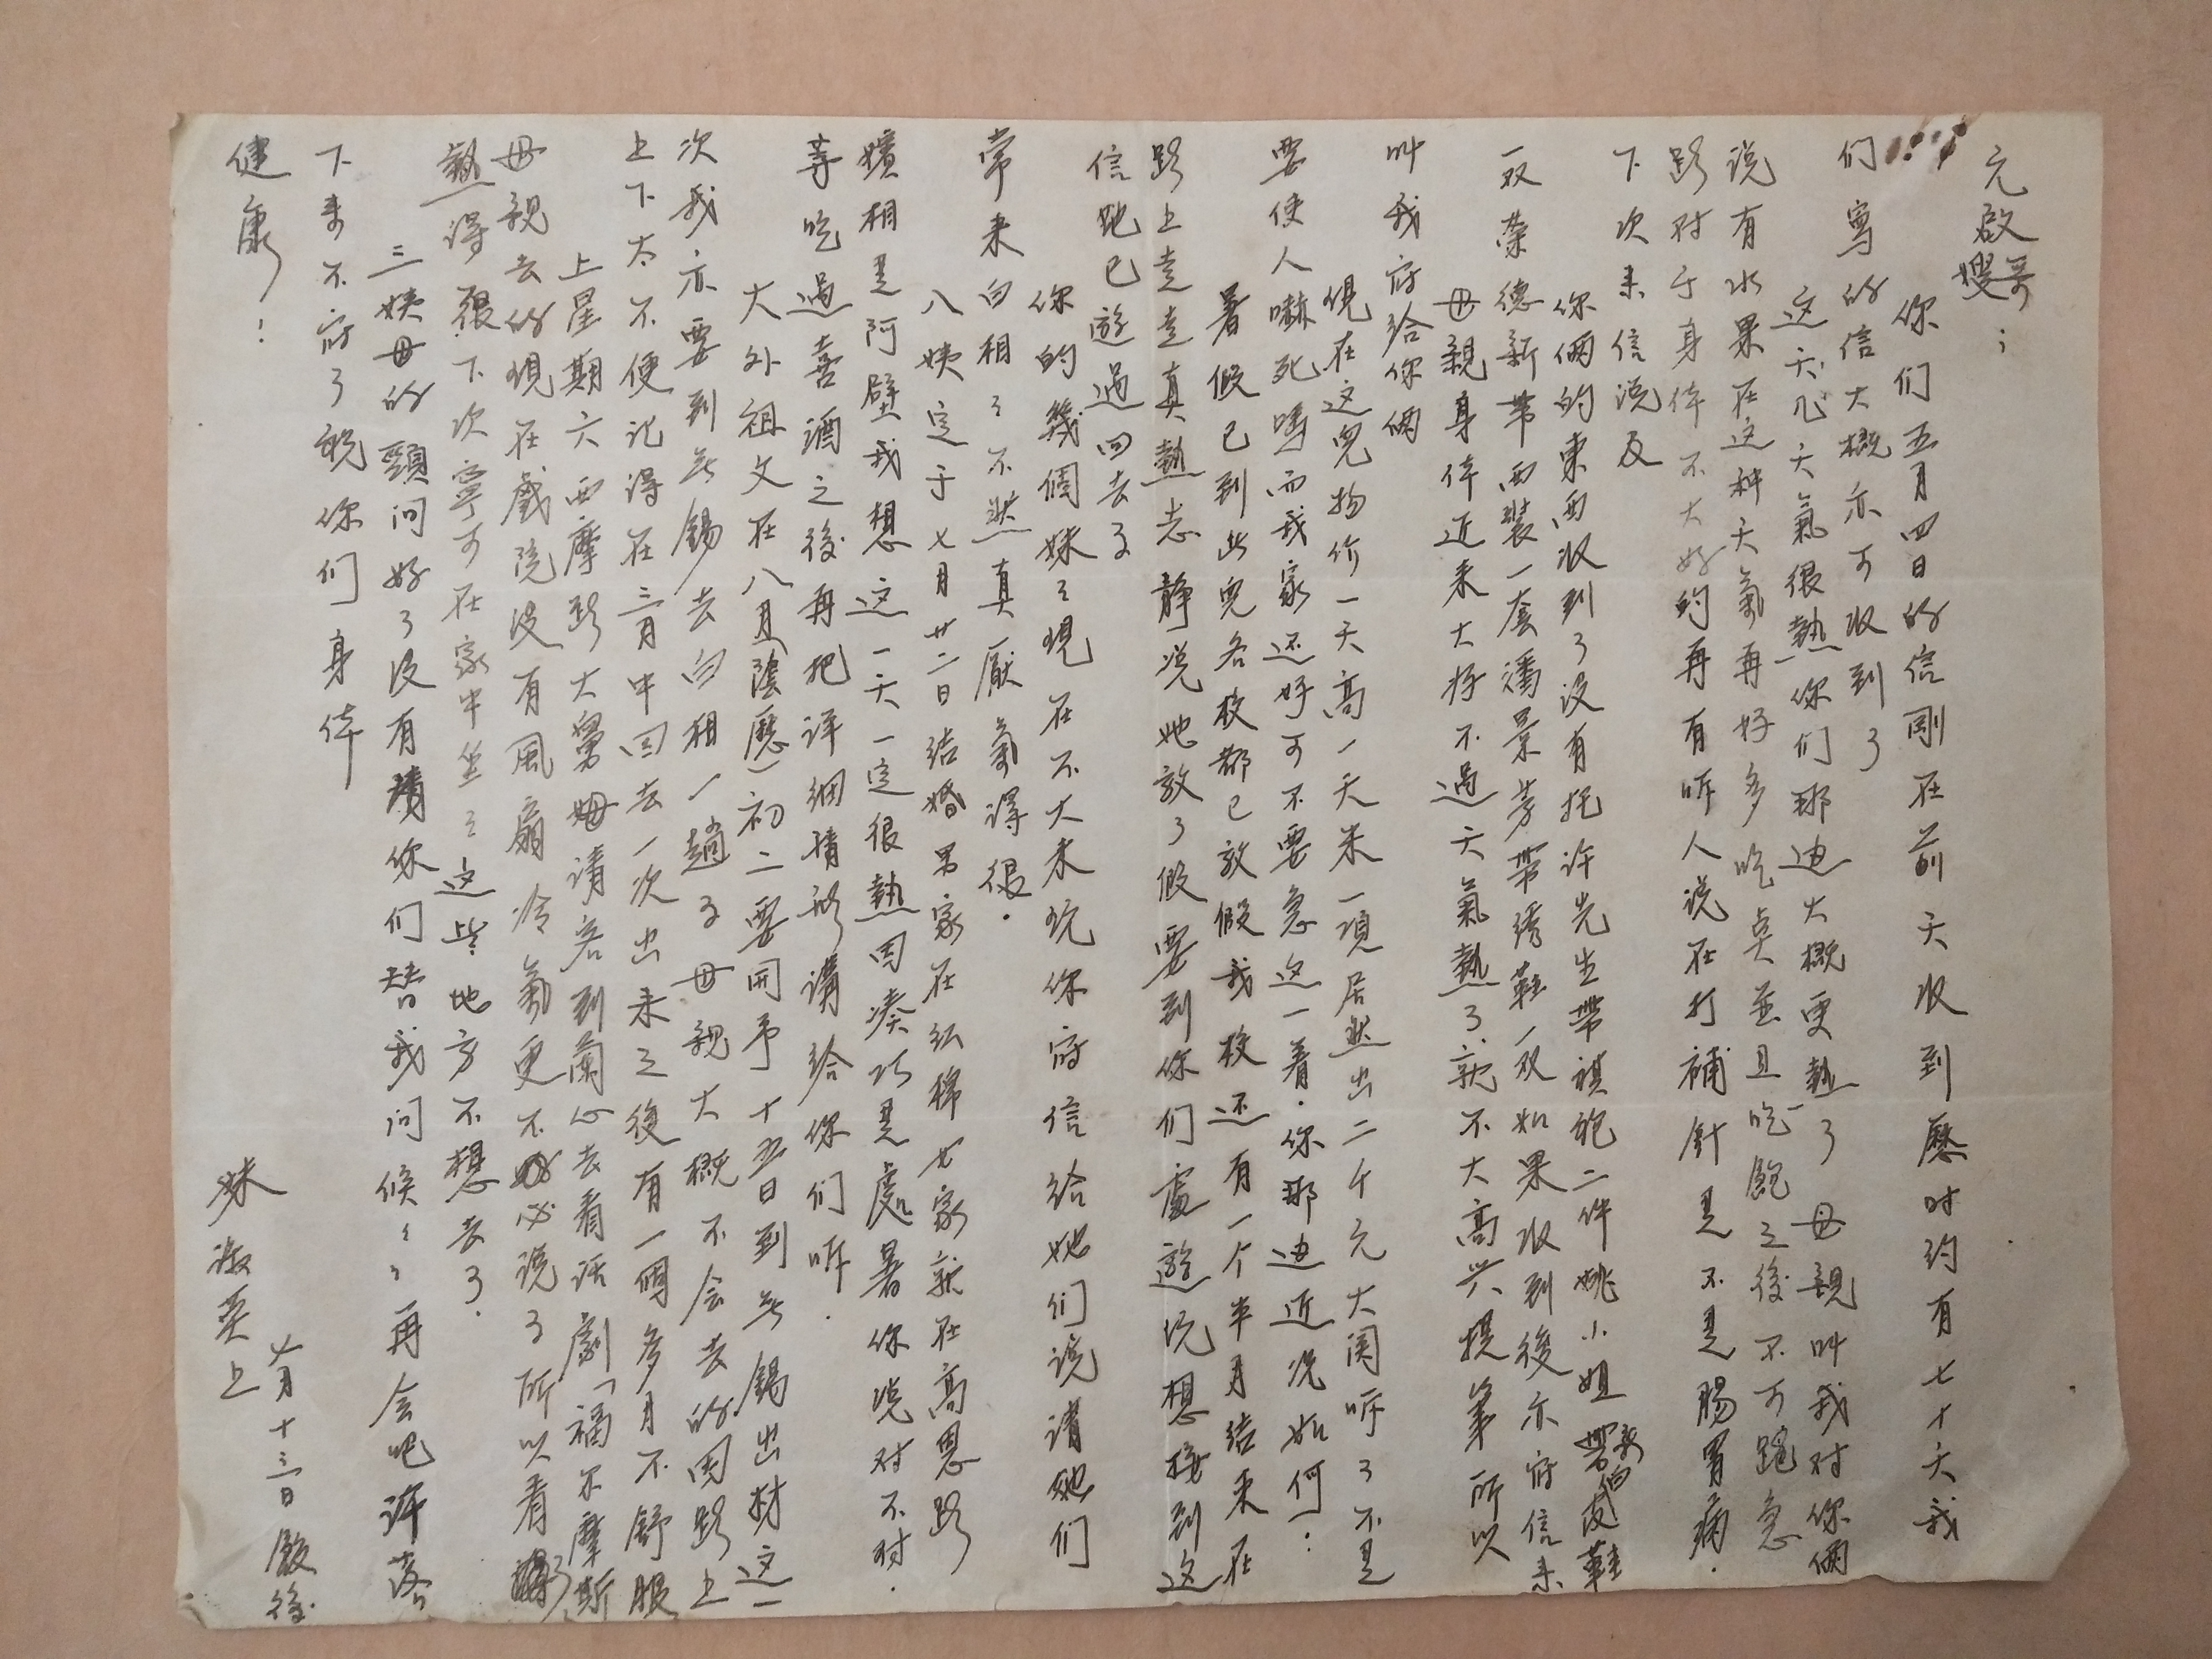 元啟哥嫂：
你们五月四日的信剛在前天收到歷时约有七十天我
们寫的信大概亦可收到了
这天几天氣很熱你们那边大概更熱了母親叫我对你倆
说有水果在这种天氣再好多吃桌並且吃飽之後不可跑急
路对于身体不大好的再有听人说在打補針是不是腸胃病.
下次来信说及
你倆的東西收到了没有托许先生帶祺袍二件姚小姐白皮鞋
一双荣德新帶西裝一套潘景芳帶绣鞋一双如果收到後亦府信来
母親身体近来大好不過天氣熱了就不大高兴提筆所以
叫我府给你倆
現在这兒物价一天高一天米一項居然出二千元大関听了不是
要使人嚇死嗎而我家还好可不要急这一着.你那边近况如何?:
暑假已到此兒各校都已放假我校还有一个半月结束在
路上走走真熱志静说她放了假要到你们處遊玩想接到这
信她已遊過回去了
你的幾個妹々現在不大来玩你府信给她们说請她们
常来白相々不然真厭氣得很.
八姨定于七月廿二日结婚男家在红棉女家就在高恩路
嬪相是阿璧我想这一天一定很熱因凑巧是處暑你说对不对.
等吃過喜酒之後再把详细情形講给你们听.
大外祖文在八月(陰歷)初二要開予十五日到无錫出材这一
次我亦要到无錫去白相一趟了母親大概不会去的因路上
上下太不便记得在三月中回去一次出来之後有一個多月不舒服
上星期六西摩路大舅姆请客到蘭心去看话劇「福尔摩斯
母親去的現在戲院没有風扇冷氣更不必说了所以看得
熱得很下次寧可在家中坐々这些地方不想去了.
三姨母的頸问好了没有請你们替我问候々々再会吧许落
下来不府了祝你们身体
健康！
妹淑英上
七月十三日飯後